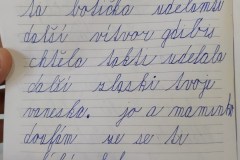 ta botička udelamti
další vítvor gdibis
chtěla takti udelala
další zlaski tvoje
vaneska. jo a maminko
doufám ze se ti